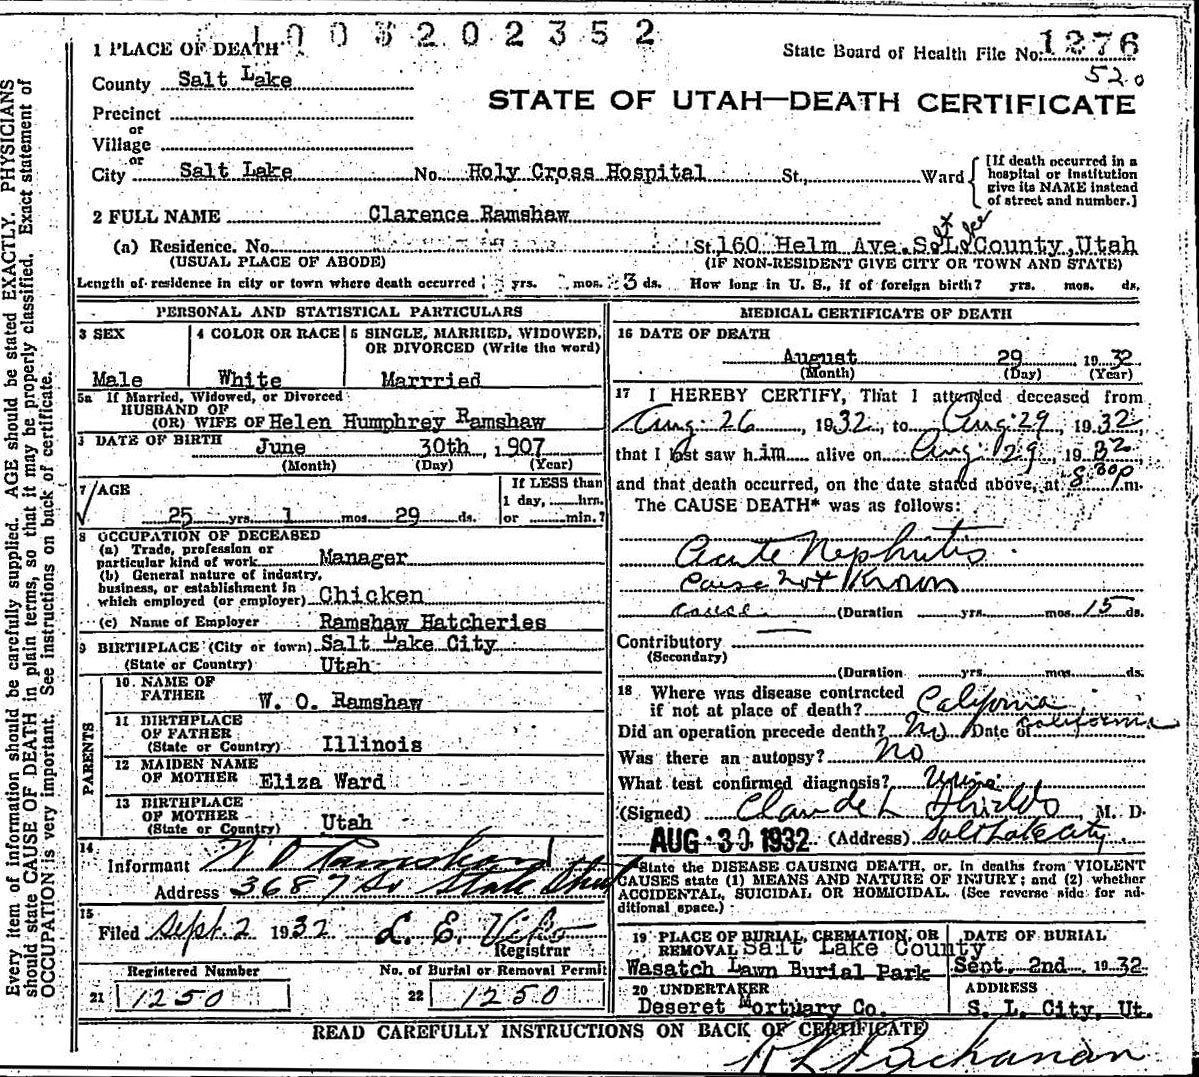 1003202352
1 PLACE OF DEATH
State Board of Health File No. 1276
County Salt Lake
520
STATE OF UTAH—DEATH CERTIFICATE
Precinct
or
Village
or
City Salt Lake No. Holy Cross Hospital St., Ward
[If death occurred in a
hospital or institution
give its NAME instead
of street and number.]
2 FULL NAME Clarence Ramshaw
(a) Residence. No. St. 160 Helm Ave. S. L. County, Utah
(USUAL PLACE OF ABODE) (IF NON-RESIDENT GIVE CITY OR TOWN AND STATE)
Length of residence in city or town where death occurred yrs. mos. 3 ds. How long in U. S., if of foreign birth? yrs. mos. ds.
PERSONAL AND STATISTICAL PARTICULARS
3 SEX
Male
4 COLOR OR RACE
White
5 SINGLE, MARRIED, WIDOWED,
OR DIVORCED (Write the word)
Marrried
5a If Married, Widowed, or Divorced
HUSBAND OF
(OR) WIFE OF Helen Humphrey Ramshaw
DATE OF BIRTH June 30th, 1907
(Month) (Day) (Year)
7 AGE
25 yrs. 1 mos. 29 ds.
If LESS than
1 day, hrs.
or min.?
8 OCCUPATION OF DECEASED
(a) Trade, profession or
particular kind of work Manager
(b) General nature of industry,
business, or establishment in
which employed (or employer) Chicken
(c) Name of Employer Ramshaw Hatcheries
9 BIRTHPLACE (City or town) Salt Lake City
(State or Country) Utah
PARENTS
10 NAME OF
FATHER W. O. Ramshaw
11 BIRTHPLACE
OF FATHER
(State or Country) Illinois
12 MAIDEN NAME
OF MOTHER Eliza Ward
13 BIRTHPLACE
OF MOTHER
(State or Country) Utah
14
Informant W O Ramshaw
Address 3687 So State Street
15
Filed Sept. 2 1932 L. E.
Registrar
Registered Number
21 1250
No. of Burial or Removal Permit
22 1250
MEDICAL CERTIFICATE OF DEATH
16 DATE OF DEATH
August 29 1932
(Month) (Day) (Year)
17 I HEREBY CERTIFY, That I attended deceased from
Aug. 26, 1932, to Aug. 29, 1932
that I last saw him alive on Aug. 29, 1932
and that death occurred, on the date stated above, at 8:30 p m.
The CAUSE DEATH* was as follows:
Acute Nephritis
cause not Known
cause (Duration yrs. mos. 15 ds.
Contributory
(Secondary)
(Duration yrs. mos. ds.
18 Where was disease contracted
if not at place of death? California
Did an operation precede death? No Date of California
Was there an autopsy? No
What test confirmed diagnosis? Urine
(Signed) Claude L Shields M. D.
AUG 30 1932 (Address) Salt Lake City
*State the DISEASE CAUSING DEATH, or, in deaths from VIOLENT
CAUSES state (1) MEANS AND NATURE OF INJURY; and (2) whether
ACCIDENTAL, SUICIDAL OR HOMICIDAL. (See reverse side for ad-
ditional space.)
19 PLACE OF BURIAL, CREMATION, OR
REMOVAL Salt Lake County
Wasatch Lawn Burial Park
DATE OF BURIAL
Sept. 2nd 1932
20 UNDERTAKER
Deseret Mortuary Co.
ADDRESS
S. L. City, Ut.
READ CAREFULLY INSTRUCTIONS ON BACK OF CERTIFICATE
Buchanan
Every item of information should be carefully supplied. AGE should be stated EXACTLY. PHYSICIANS
should state CAUSE OF DEATH in plain terms, so that it may be properly classified. Exact statement of
OCCUPATION is very important. See instructions on back of certificate.